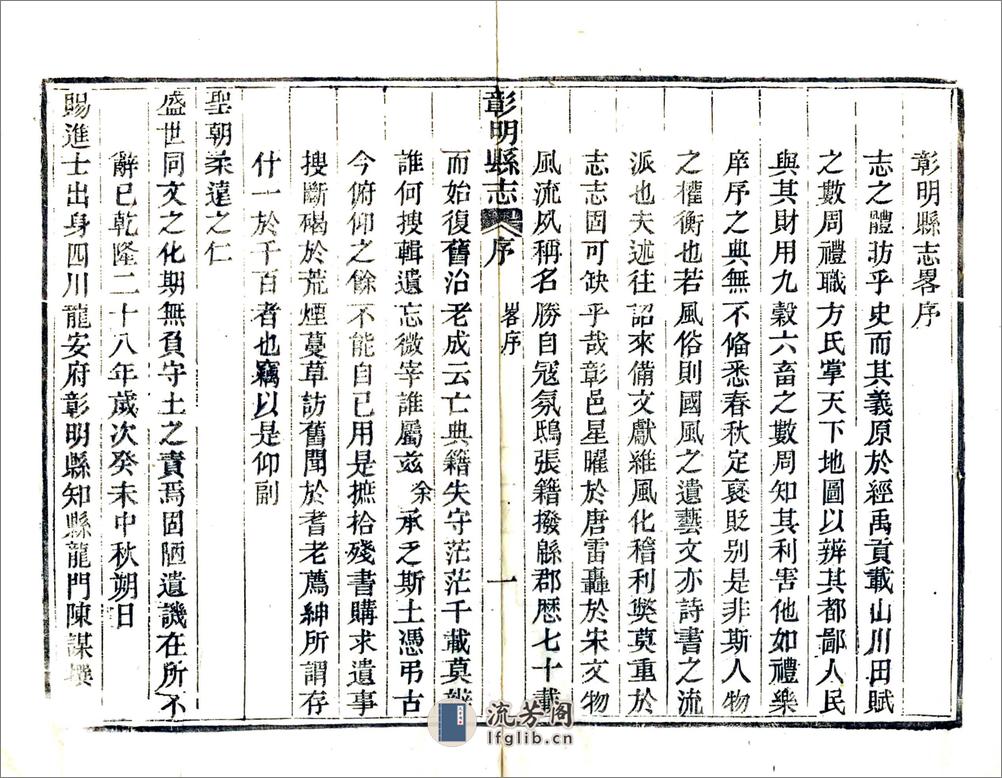 彰明縣志畧序
志之體昉乎史而其義原於經禹貢載山川田賦
之數周禮職方氏掌天下地圖以辨其都鄙人民
與其財用九穀六畜之數周知其利害他如禮樂
庠序之典無不俻悉春秋定襃貶别是非斯人物
之權衡也若風俗則國風之遺藝文亦詩書之流
派也夫述往詔來備文獻維風化稽利獘莫重於
志志固可缺乎哉彰邑星曜於唐雷轟於宋文物
風流夙稱名勝自冦氛鴟張籍撥緜郡歴七十載
彰明縣志 序 畧序 一
而始復舊治老成云亡典籍失守茫茫千載莫辨
誰何搜輯遺忘微宰誰屬兹余承乏斯土憑弔古
今俯仰之餘不能自已用是摭拾殘書購求遺事
搜斷碣於荒煙蔓草訪舊聞於耆老薦紳所謂存
什一於千百者也竊以是仰副
聖朝柔遠之仁
盛世同文之化期無負守土之責焉固陋遺譏在所不
辭已乾隆二十八年歲次癸未中秋朔日
賜進士出身四川龍安府彰明縣知縣龍門陳謀撰
流芳阁
lfglib.cn